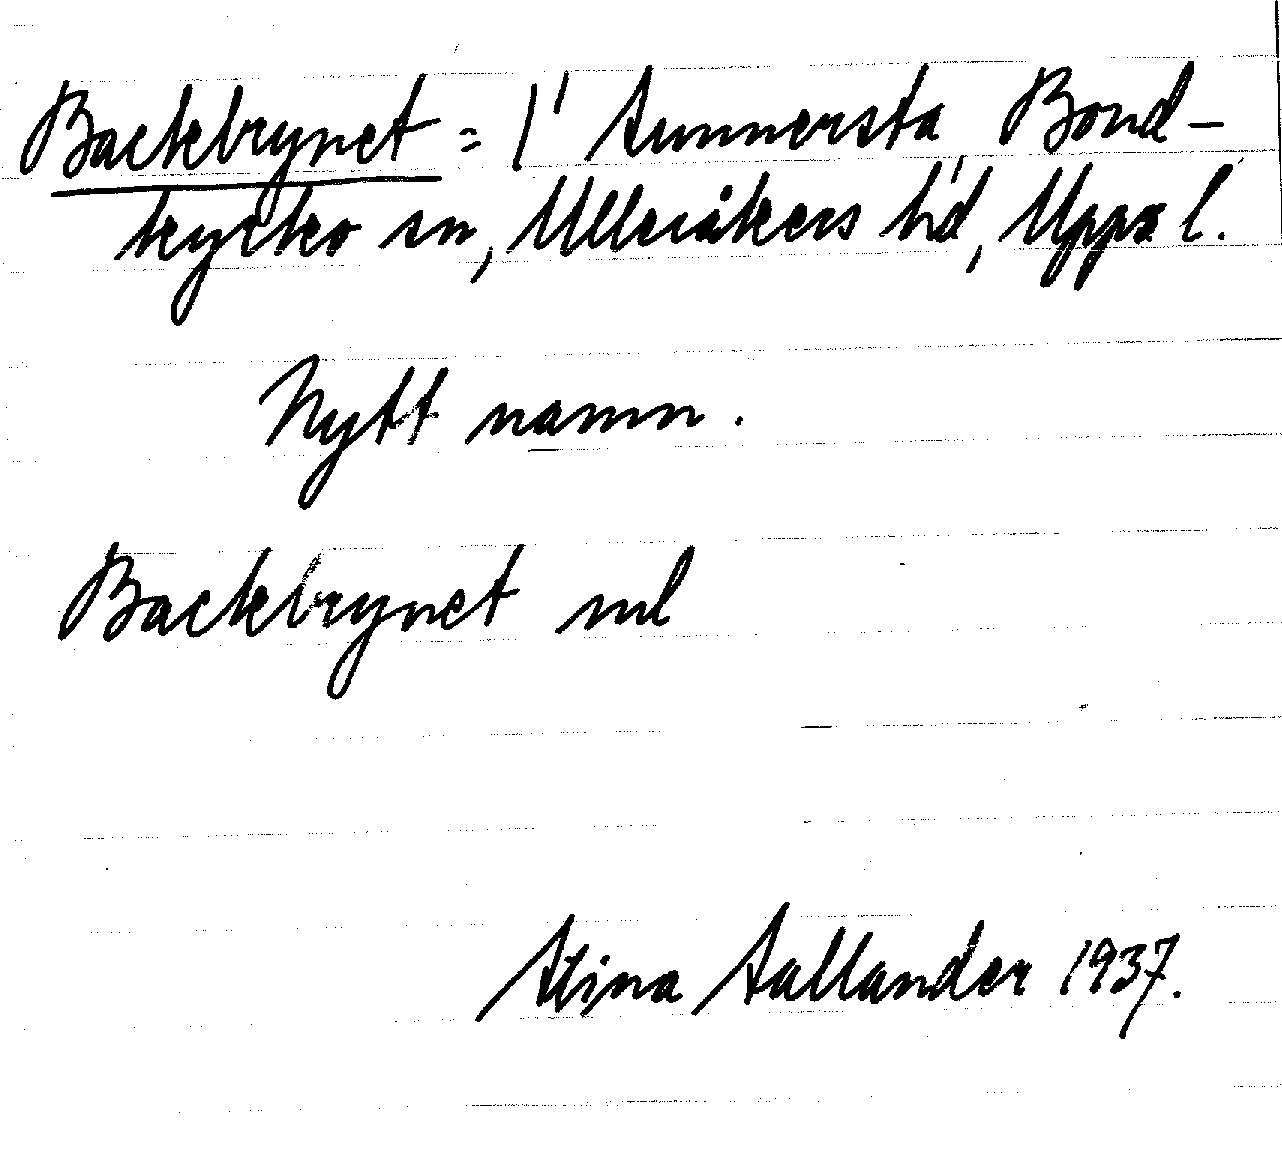 Backbrynet = 1' Sunnersta Bond-
kyrko sn, Ulleråkers hd, Upps l.
Nytt namn.
Backbrynet ml
Stina Sallander 1937.